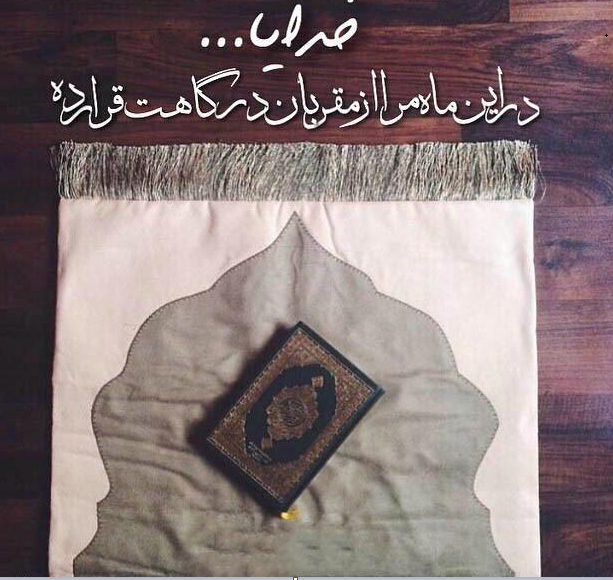 خدایا...
در این ماه مرا از مقربان درگاهت قرار ده